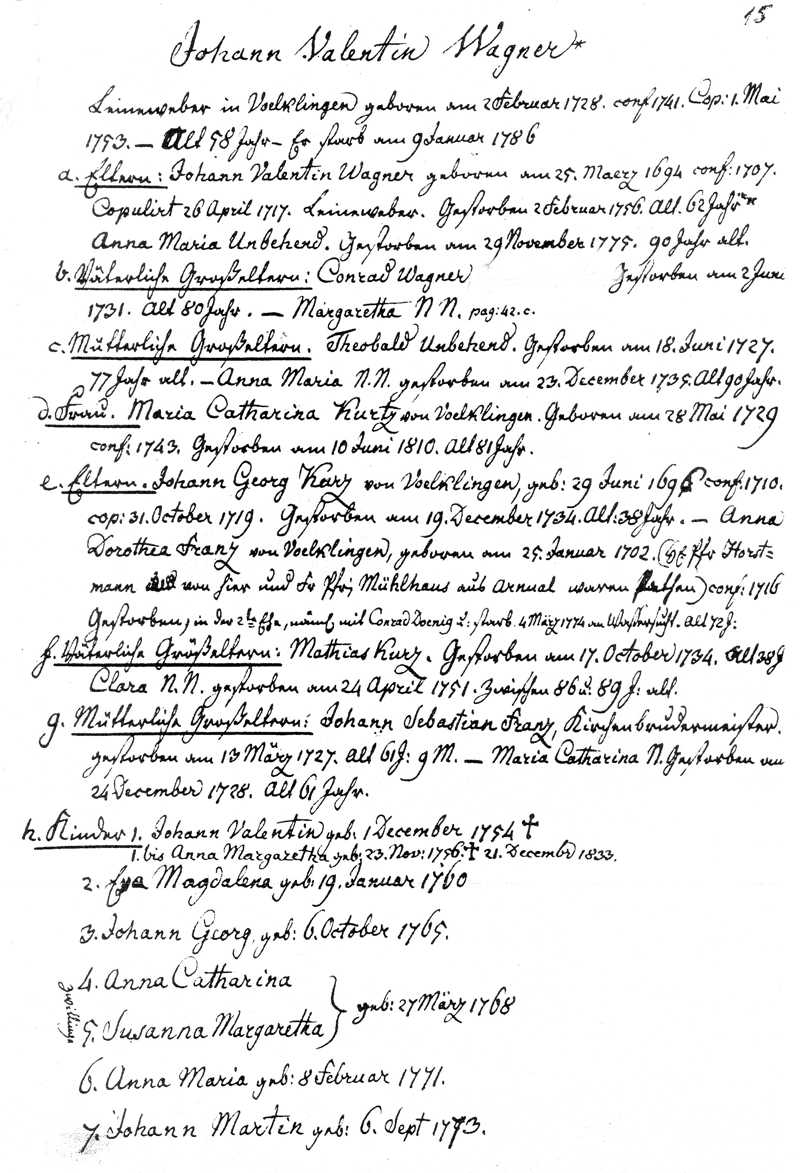 15
Johann Valentin Wagner*
Leineweber in Voelklingen geboren am 2 Februar 1728. conf 1741. Cop: 1. Mai
1753. — Alt 58 Jahr — Er starb am 9 Januar 1786
a. Eltern: Johann Valentin Wagner geboren am 25. Maerz 1694 conf: 1707.
Copulirt 26 April 1717. Leineweber. Gestorben 2 Februar 1756. Alt. 62 Jahr**
Anna Maria Unbehend. Gestorben am 29 November 1775. 90 Jahr alt.
b. Väterliche Großeltern: Conrad Wagner Gestorben am 2 Juni
1731. Alt 80 Jahr. — Margaretha N N. pag: 42. c.
c. Mütterliche Großeltern. Theobald Unbehend. Gestorben am 18. Juni 1727.
77 Jahr alt. — Anna Maria N.N. gestorben am 23. December 1735. Alt 90 Jahr.
d. Frau. Maria Catharina Kurtz von Voelklingen. Geboren am 28 Mai 1729
conf: 1743. Gestorben am 10 Juni 1810. Alt 81 Jahr.
e. Eltern. Johann Georg Kurz von Voelklingen, geb: 29 Juni 1696 conf: 1710.
cop: 31. October 1719. Gestorben am 19. December 1734. Alt: 38 Jahr. — Anna
Dorothea Franz von Voelklingen, geboren am 25. Januar 1702. (Pfr Horst=
mann von hier und Fr Pfr Mühlhaus aus Arnual waren Pathen) conf: 1716
Gestorben, in der 2te Ehe, näml. mit Conrad Doenig u: starb. 4 März 1774 an Wassersucht. Alt 72 J:
f. Väterliche Großeltern: Mathias Kurz. Gestorben am 17. October 1734. Alt 38 J
Clara N.N. gestorben am 24 April 1751. Zwischen 86 u. 89 J: alt.
g. Mütterliche Großeltern: Johann Sebastian Franz, Kirchenbrudermeister.
gestorben am 13 März 1727. Alt 61 J: 9 M. — Maria Catharina N. Gestorben am
24 December 1728. Alt 61 Jahr.
h. Kinder 1. Johann Valentin geb. 1 December 1754 †
1. bis Anna Margaretha geb: 23. Nov: 1756. † 21. Decembr 1833.
2. Eva Magdalena geb: 19. Januar 1760
3. Johann Georg, geb: 6. October 1765.
4. Anna Catharina
Zwillinge } geb: 27 März 1768
5. Susanna Margaretha
6. Anna Maria geb: 8 Februar 1771.
7. Johann Martin geb: 6. Sept 1773.